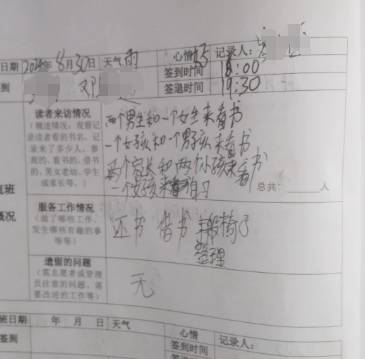 日期 2018年8月30日 天气 雨 心情 记录人：
签到时间 18:00
签到 邓 签退时间 19:30
读者来访情况
（概述情况，观察记录读者看的书名，记录来了多少人，参观的、看书的、借书的，男女老幼、学生或家长等。）
两个男生和一个女生来看书
一个女孩和一个男孩来看书
两个家长和两个小孩来看书
一个女孩来自习
总共：____人
值班
概况
服务工作情况
（做了哪些工作、发生哪些有趣的事等等）
还书 借书 搬椅子
整理
遗留的问题
（需志愿者或管理员注意的问题，需要改进的工作等）
无
值班日期 年 月 日 天气 心情 记录人：
签到 签到时间
签退时间